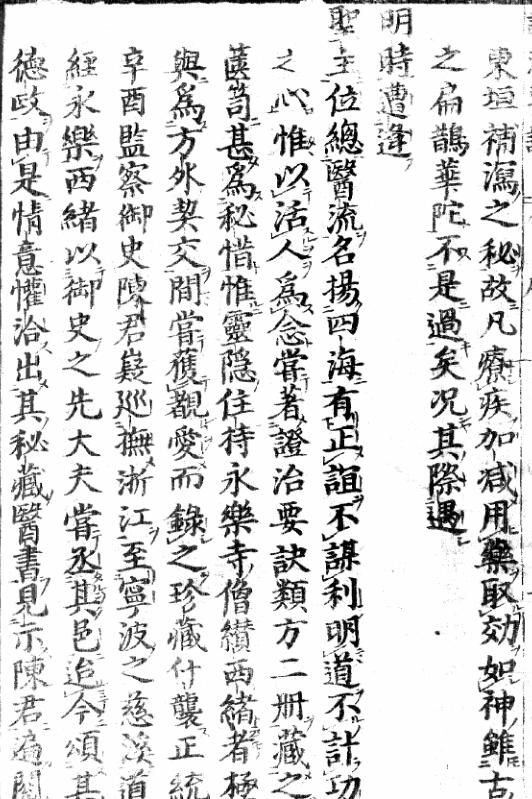 東垣補瀉之秘故凡療疾加減用藥取効如神雖古
之扁鵲華陀不是過矣况其際遇
明時遭逢
聖主位總醫流名揚四海有正誼不謀利明道不計功
之心惟以活人爲念嘗著證治要訣類方二册藏之
篋笥甚爲秘惜惟靈隱住持永樂寺僧纉西緒者極
與爲方外契交間嘗獲覩愛而錄之珍藏什襲正統
辛酉監察御史陳君嶷巡撫浙江至寧波之慈溪道
經永樂西緒以御史之先大夫嘗丞其邑迨今頌其
德政由是情意懽洽出其秘藏醫書見示陳君遍閱